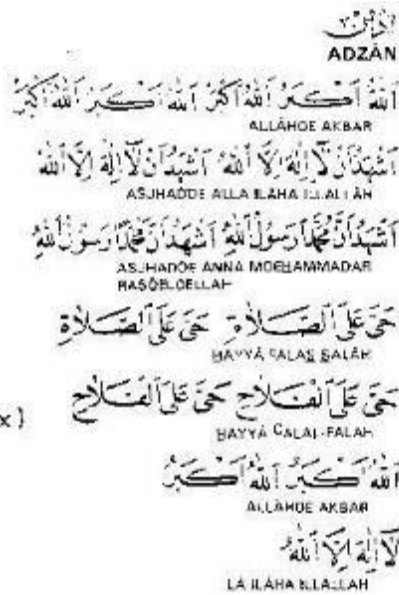 أذان
ADZÂN
اَللهُ اَكْبَرُ اَللهُ اَكْبَرُ اَللهُ اَكْبَرُ اَللهُ اَكْبَرُ
ALLÂHOE AKBAR
اَشْهَدُ اَنْ لَّآ اِلٰهَ اِلَّا اللهُ اَشْهَدُ اَنْ لَّآ اِلٰهَ اِلَّا اللهُ
ASJHADOE ALLA ILAHA ILLALLÂH
اَشْهَدُ اَنَّ مُحَمَّدًا رَسُوْلُ اللهِ اَشْهَدُ اَنَّ مُحَمَّدًا رَسُوْلُ اللهِ
ASJHADOE ANNA MOEHAMMADAR
RASÔELOELLAH
حَيَّ عَلَى الصَّلَاةِ حَيَّ عَلَى الصَّلَاةِ
HAYYÂ CALAS SALÂH
حَيَّ عَلَى الْفَلَاحِ حَيَّ عَلَى الْفَلَاحِ
x)
HAYYÂ CALAL-FALAH
اَللهُ اَكْبَرُ اَللهُ اَكْبَرُ
ALLÂHOE AKBAR
لَآ اِلٰهَ اِلَّا اللهُ
LÂ ILÂHA ILLALLAH